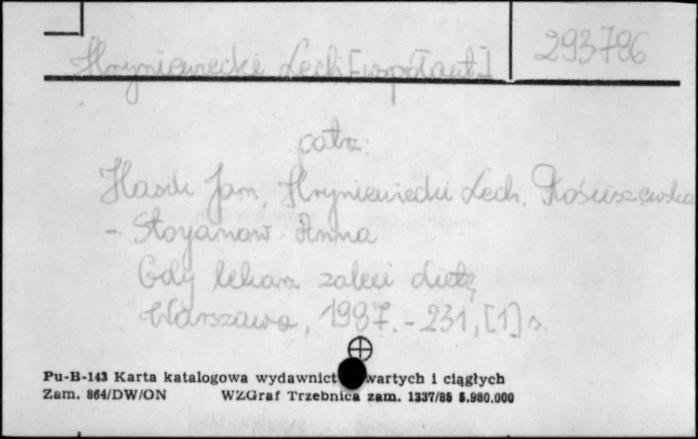 Hryniewiecki Lech [współaut.]
293786
patrz:
Hasik Jan, Hryniewiecki Lech, Rościszewska
- Stoyanow Anna
Gdy lekarz zaleci dietę
Warszawa, 1987. - 231, [1] s.
Pu-B-143 Karta katalogowa wydawnict wartych i ciągłych
Zam. 864/DW/ON WZGraf Trzebnica zam. 1337/85 5.980.000